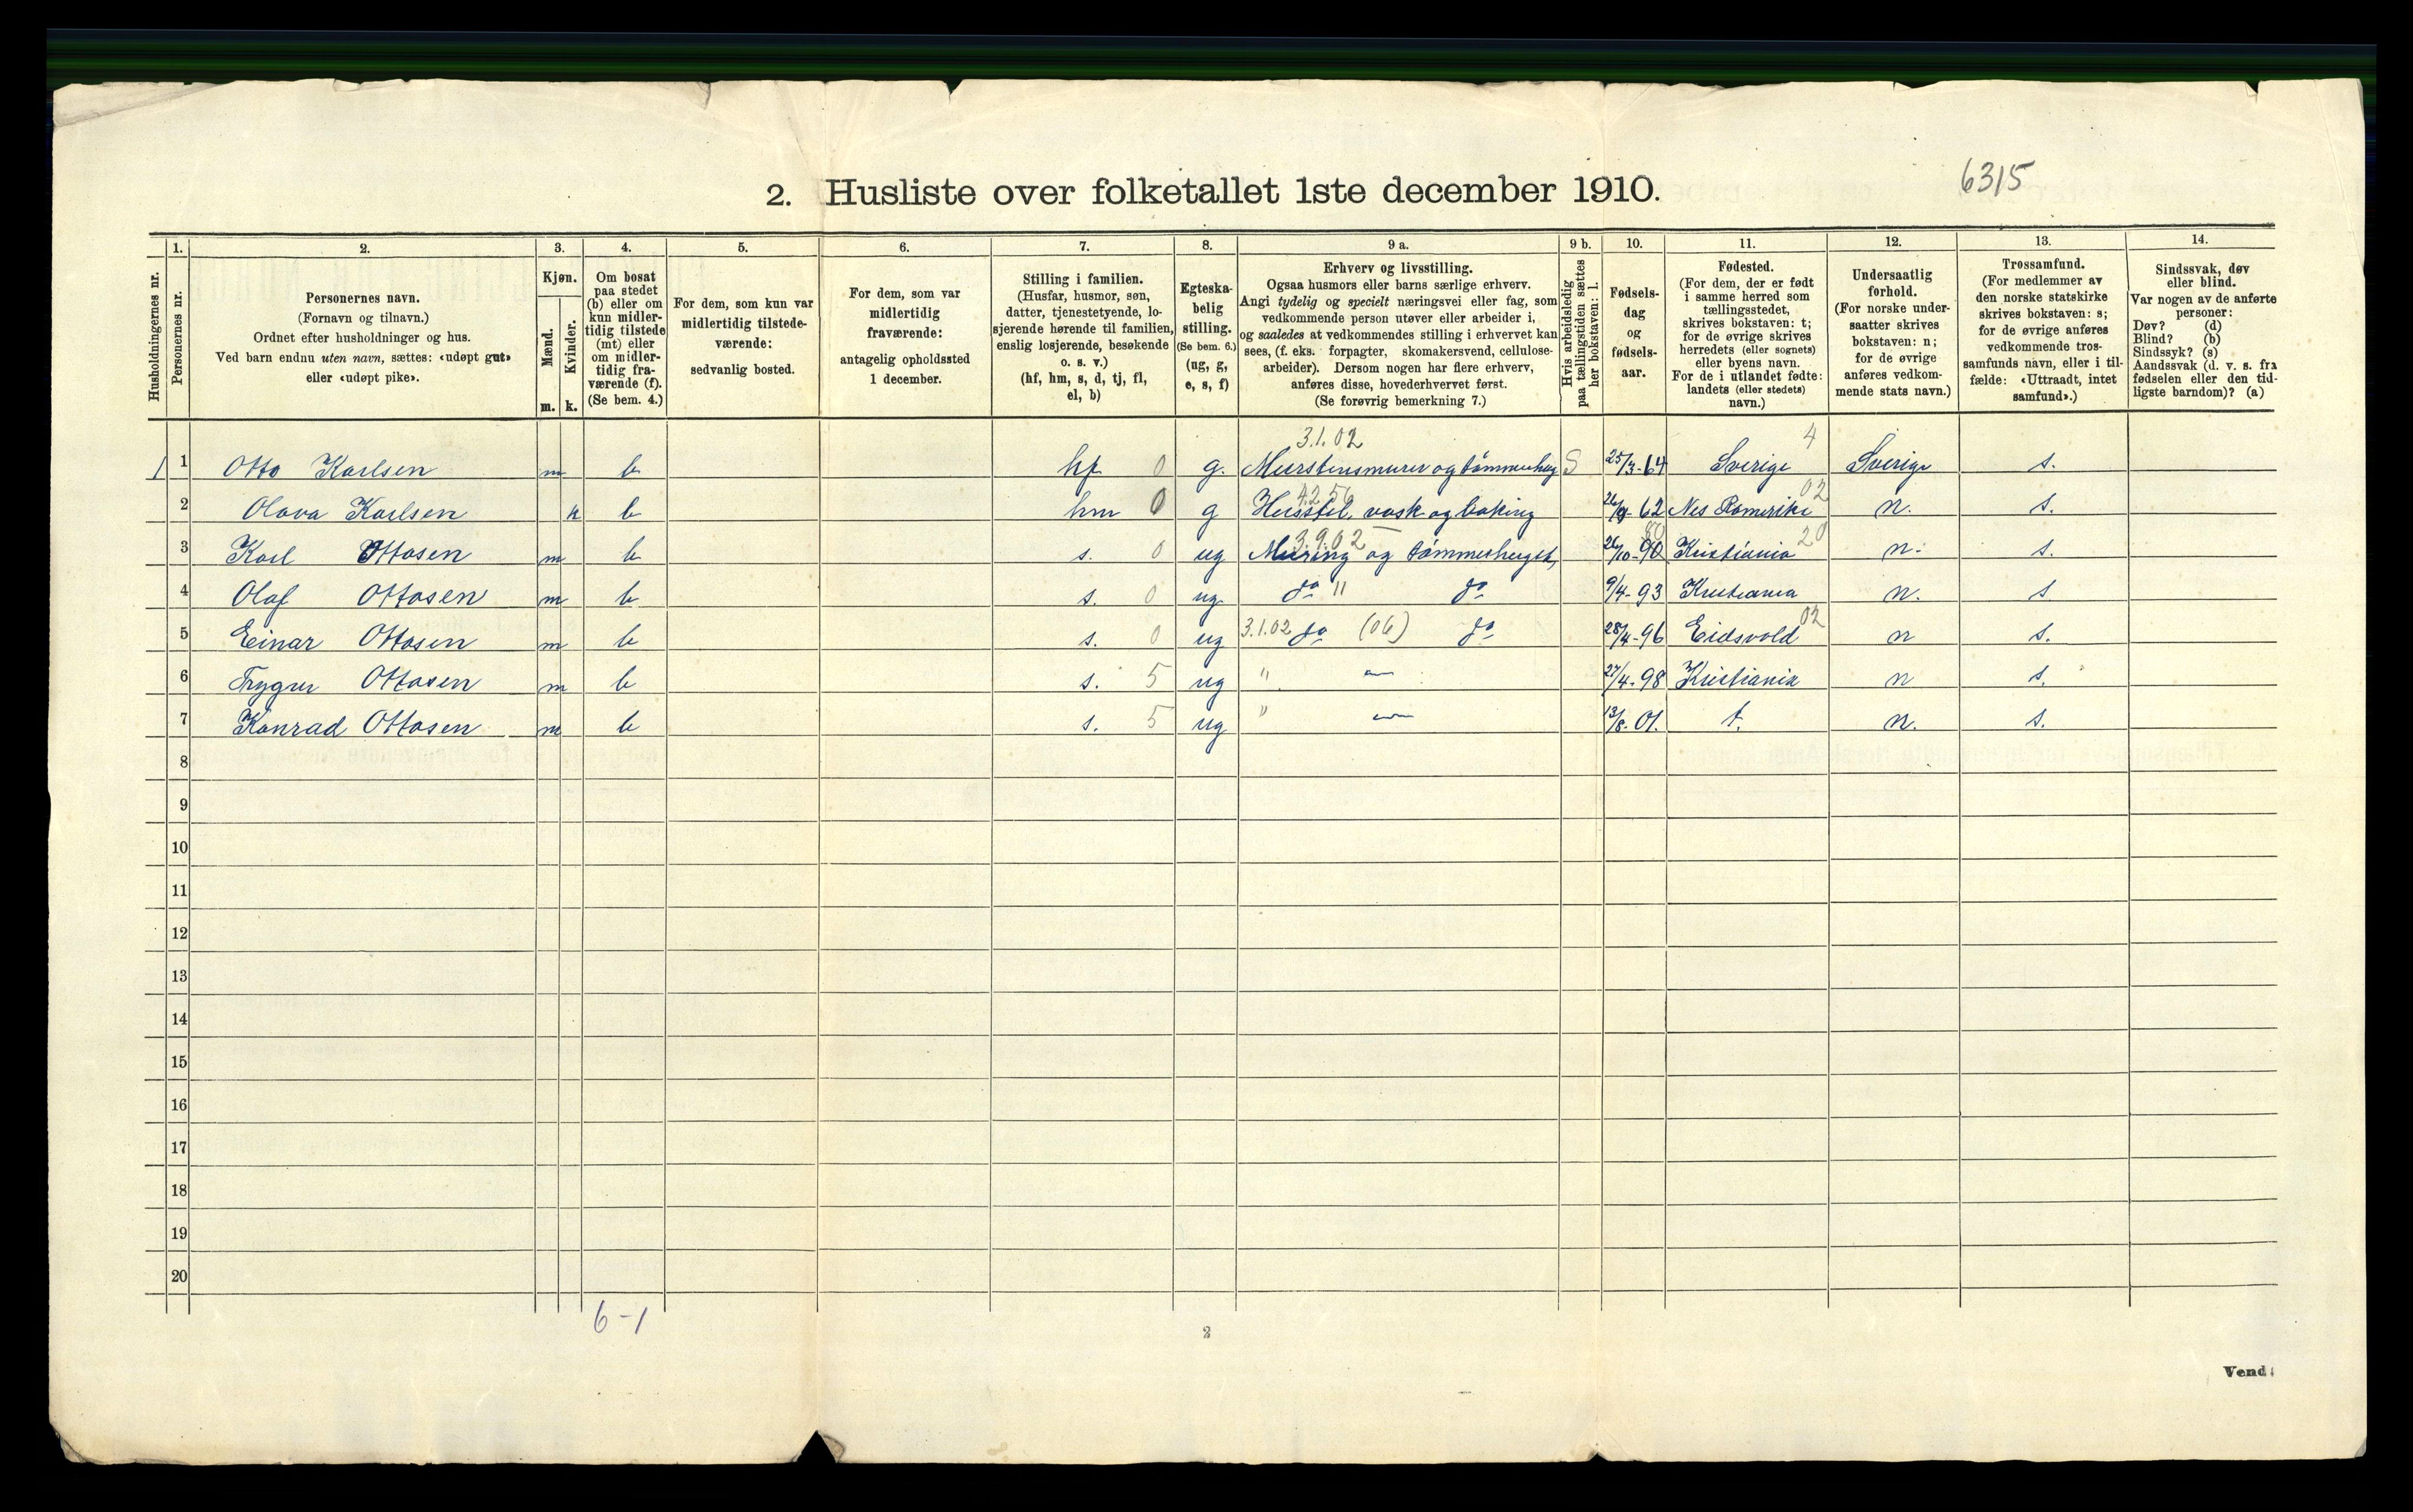 6315
2. Husliste over folketallet 1ste december 1910.
Husholdningernes nr.
1. Personernes nr.
2. Personernes navn.
(Fornavn og tilnavn.)
Ordnet efter husholdninger og hus.
Ved barn endnu uten navn, sættes: «udøpt gut»
eller «udøpt pike».
3. Kjøn.
Mænd. m.
Kvinder. k.
4. Om bosat
paa stedet
(b) eller om
kun midler-
tidig tilstede
(mt) eller
om midler-
tidig fra-
værende (f).
(Se bem. 4.)
5. For dem, som kun var
midlertidig tilstede-
værende:
sedvanlig bosted.
6. For dem, som var
midlertidig
fraværende:
antagelig opholdssted
1 december.
7. Stilling i familien.
(Husfar, husmor, søn,
datter, tjenestetyende, lo-
sjerende hørende til familien,
enslig losjerende, besøkende
o. s. v.)
(hf, hm, s, d, tj, fl,
el, b)
8. Egteska-
belig
stilling.
(Se bem. 6.)
(ug, g,
e, s, f)
9 a. Erhverv og livsstilling.
Ogsaa husmors eller barns særlige erhverv.
Angi tydelig og specielt næringsvei eller fag, som
vedkommende person utøver eller arbeider i,
og saaledes at vedkommendes stilling i erhvervet kan
sees, (f. eks. forpagter, skomakersvend, cellulose-
arbeider). Dersom nogen har flere erhverv,
anføres disse, hovederhvervet først.
(Se forøvrig bemerkning 7.)
9 b. Hvis arbeidsledig
paa tællingstiden sættes
her bokstaven: l.
10. Fødsels-
dag
og
fødsels-
aar.
11. Fødested.
(For dem, der er født
i samme herred som
tællingsstedet,
skrives bokstaven: t;
for de øvrige skrives
herredets (eller sognets)
eller byens navn.
For de i utlandet fødte:
landets (eller stedets)
navn.)
12. Undersaatlig
forhold.
(For norske under-
saatter skrives
bokstaven: n;
for de øvrige
anføres vedkom-
mende stats navn.)
13. Trossamfund.
(For medlemmer av
den norske statskirke
skrives bokstaven: s;
for de øvrige anføres
vedkommende tros-
samfunds navn, eller i til-
fælde: «Uttraadt, intet
samfund».)
14. Sindssvak, døv
eller blind.
Var nogen av de anførte
personer:
Døv? (d)
Blind? (b)
Sindssyk? (s)
Aandssvak (d. v. s. fra
fødselen eller den tid-
ligste barndom)? (a)
3.1.02 4
1 1 Otto Karlsen m b hf 0 g. Murstensmurer og tömmerhug S 25/3-64 Sverige Sverige s.
4250 02
2 Olava Karlsen k b hm 0 g Husstel, vask og baking 26/9-62 Nes Romerike n. s.
3.9.02 80 20
3 Karl Ottosen m b s. 0 ug Muring og tömmerhugst, 26/10-90 Kristiania n. s.
4 Olaf Ottosen m b s. 0 ug do " do 9/4-93 Kristiania n. s
3.1.02 (06) 02
5 Einar Ottosen m b s. 0 ug do do 28/4-96 Eidsvold n s.
6 Trygve Ottosen m b s. 5 ug " — 27/4-98 Kristiania n s.
7 Konrad Ottosen m b s. 5 ug " — 13/8-01. t. n. s.
8
9
10
11
12
13
14
15
16
17
18
19
20
6-1
2
Vend